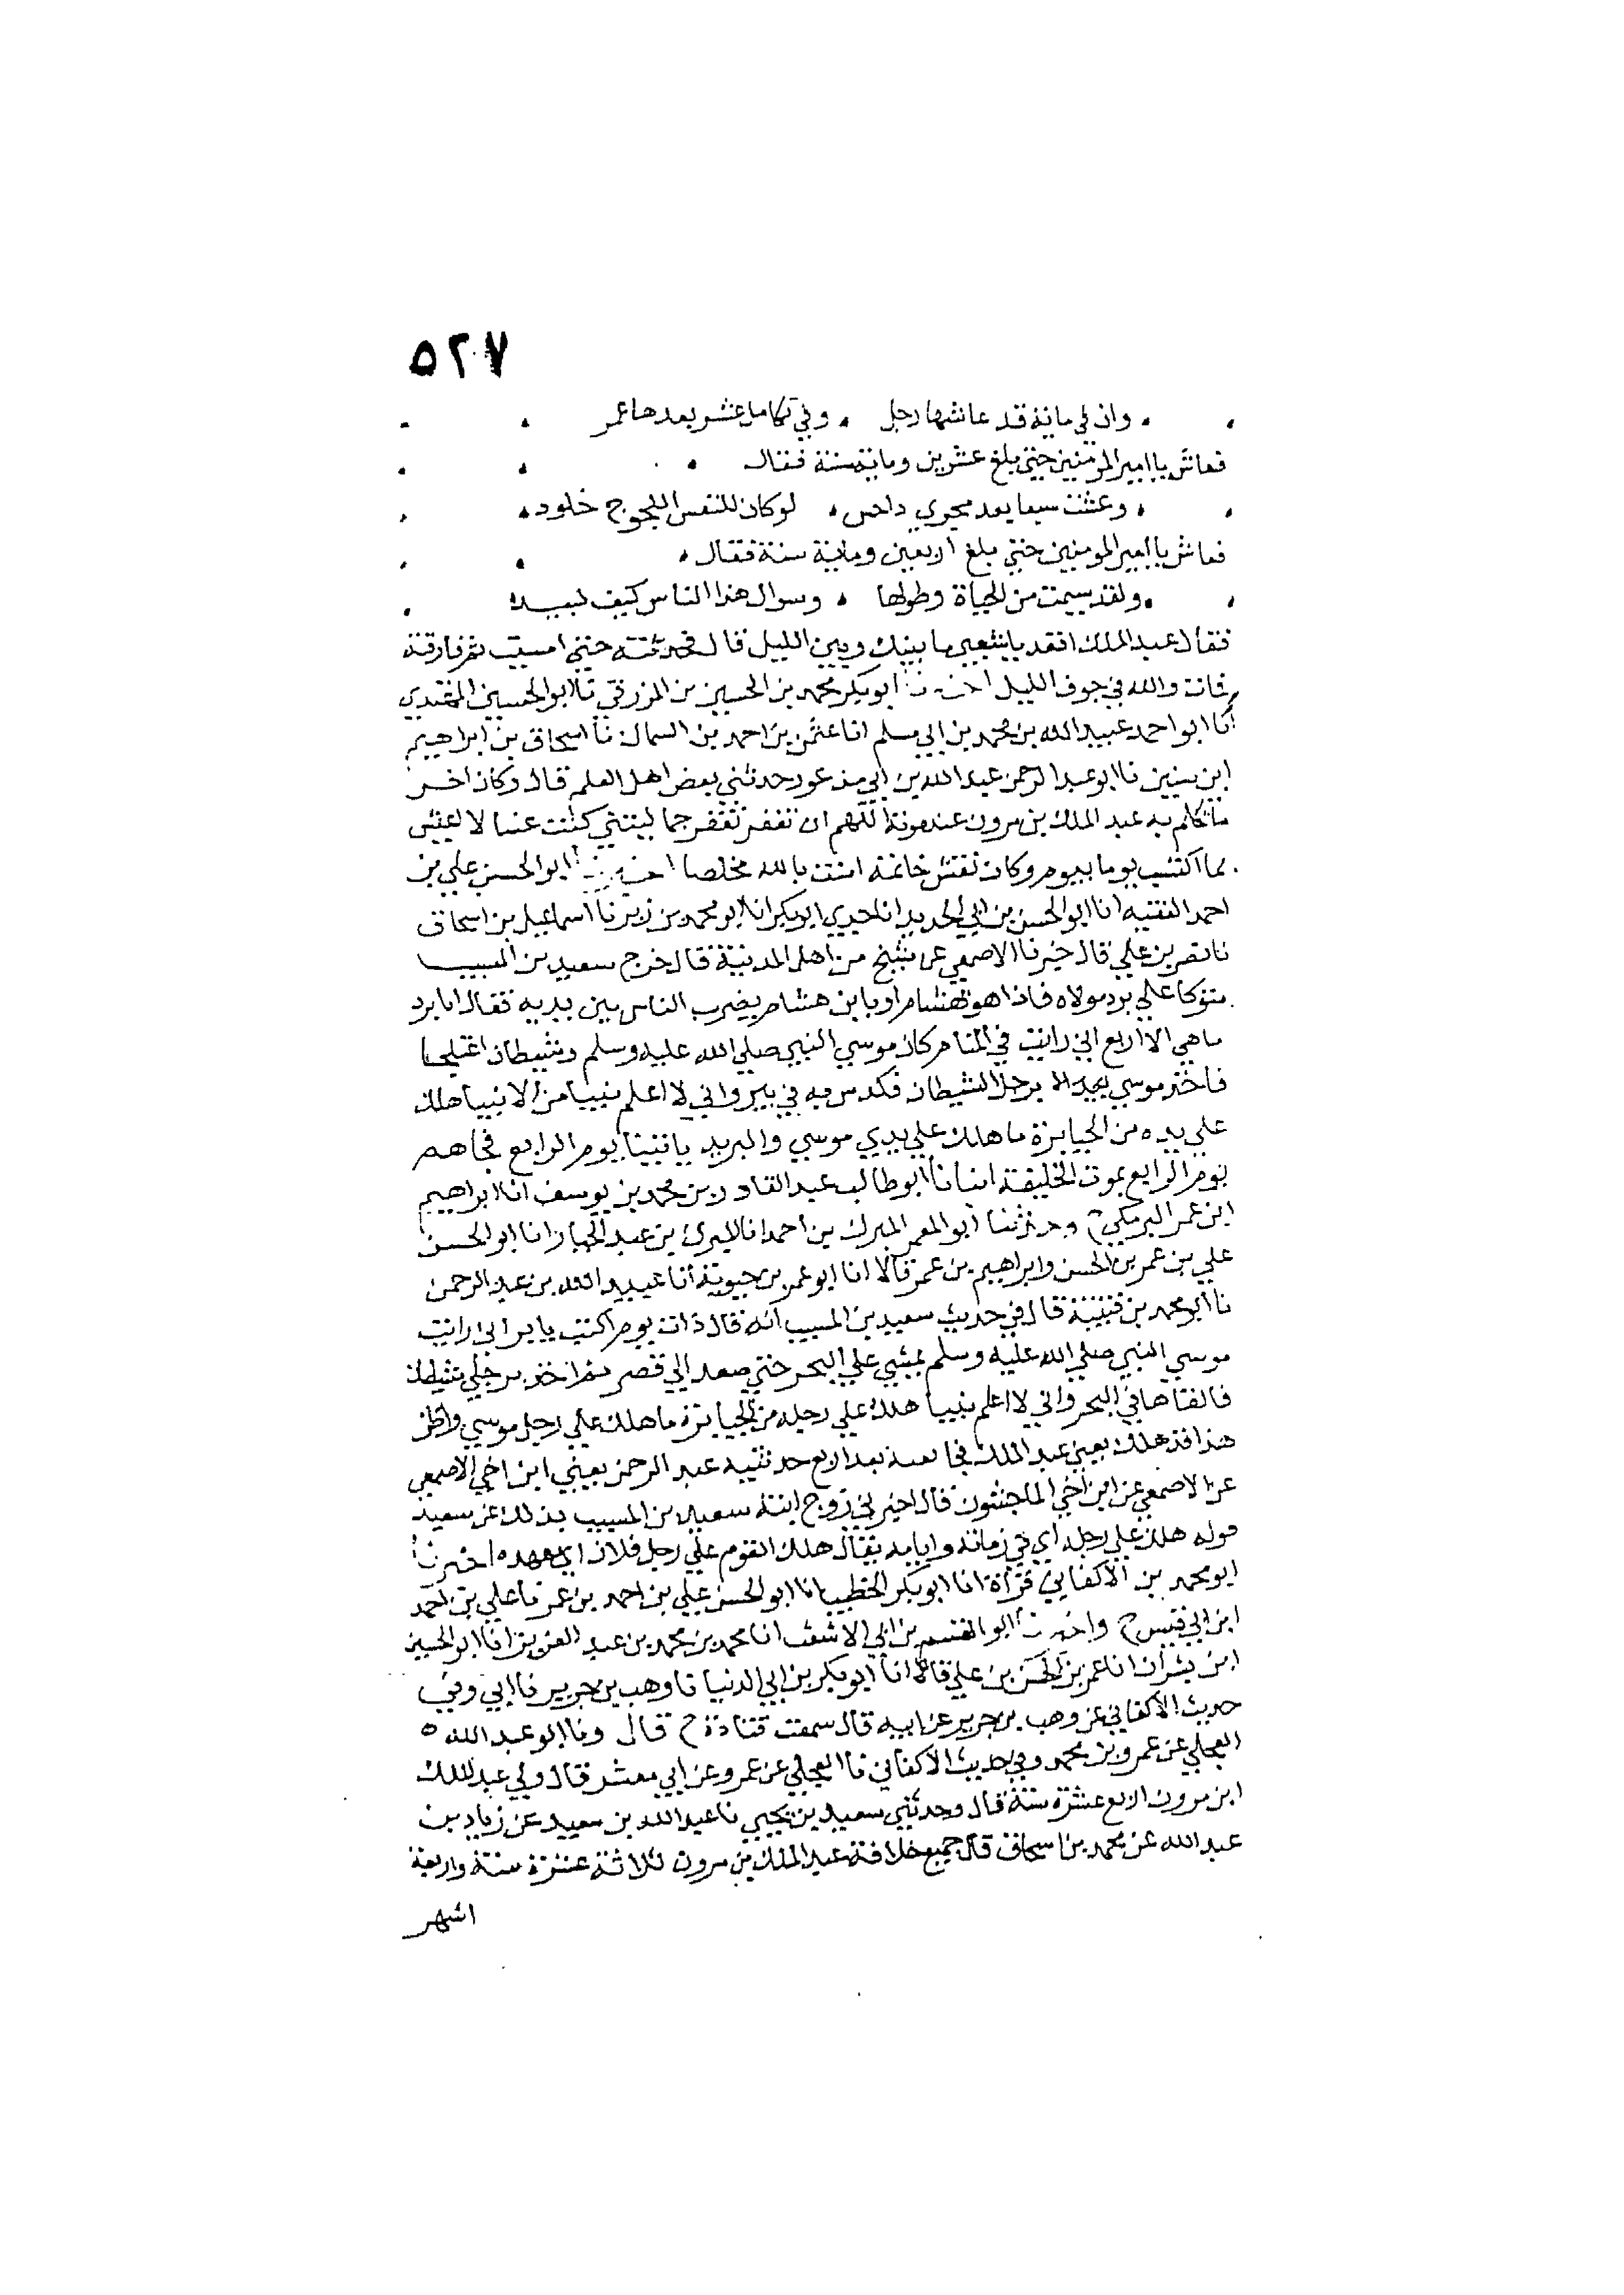 ٥٢٧
وان في ماية قد عاشها رجل وفي تكامل عشر بعدها عمر
فعاش يا امير المومنين حتى بلغ عشرين وماية سنة فقال
وعشت سبعا بعد مجري داحس لو كان للنفس اللجوج خلود
فعاش يا امير المومنين حتى بلغ اربعين وماية سنة فقال
ولقد سيمت من الحياة وطولها وسوال هذا الناس كيف لبيد
فقال عبد الملك اقعد يا شعبي ما بينك وبين الليل قال فحدثته حتى امسيت ثم فارقته
فمات والله في جوف الليل اخبرنا ابو بكر محمد بن الحسين بن المزرفي نا ابو الحسين المهتدي
انا ابو احمد عبيد الله بن محمد بن ابي مسلم انا عثمن بن احمد بن السماك نا اسحاق بن ابراهيم
ابن سنين نا ابو عبد الرحمن عبد الله بن ابي مذعور حدثني بعض اهل العلم قال وكان اخر
ما تكلم به عبد الملك بن مرون عند موته اللهم ان تغفر تغفر جما ليتني كنت عسا لا اعيش
بما اكتسب يوما بيوم وكان نقش خاتمه امنت بالله مخلصا اخبرنا ابو الحسن علي بن
احمد الفقيه انا ابو الحسن بن ابي الحديد انا جدي ابو بكر انا ابو محمد بن زبر نا اسماعيل بن اسحاق
نا نصر بن علي قال خبرنا الاصمعي عن شيخ من اهل المدينة قال خرج سعيد بن المسيب
متوكا على برد مولاه فاذا هو بهشام او يا ابن هشام يضرب الناس بين يديه فقال ابا برد
ما هي الا اربع اني رايت في المنام كان موسي النبي صلي الله عليه وسلم وشيطان اعتلجا
فاخذ موسي برجل الشيطان فكدس به في بير واني لا اعلم نبيا من الانبيا هلك
علي يده من الجبابرة ما هلك علي يدي موسي والبريد ياتينا يوم الرابع فجاهم
يوم الرابع بموت الخليفة انبانا ابو طالب عبد القادر بن محمد بن يوسف انا ابراهيم
ابن عمر البرمكي ح وحدثنا ابو المعمر المبرك بن احمد انا المبرك بن عبد الجبار انا ابو الحسن
علي بن عمر بن الحسن وابراهيم بن عمر قالا انا ابو عمر بن حيوية انا عبيد الله بن عبد الرحمن
نا ابو محمد بن قتيبة قال في حديث سعيد بن المسيب انه قال ذات يوم اكتب يا برد اني رايت
موسي النبي صلي الله عليه وسلم يمشي علي البحر حتي صعد الي قصر ثم اخذ برجلي شيطان
فالقاها في البحر واني لا اعلم نبيا هلك علي رجله من الجبابرة ما هلك علي رجل موسي واظن
هذا قد هلك يعني عبد الملك فجا نعيه بعد اربع حدثنيه عبد الرحمن يعني ابن اخي الاصمعي
عن الاصمعي عن ابن اخي الماجشون قال اخبرني زوج ابنة سعيد بن المسيب بذلك عن سعيد
قوله هلك علي رجله اي في زمانه وايامه يقال هلك القوم علي رجل فلان اي بعهده اخبرنا
ابو محمد بن الاكفاني قراة انا ابو بكر الخطيب انا ابو الحسن علي بن احمد بن عمر نا علي بن احمد
ابن ابي قيس ح واخبرنا ابو القسم بن ابي الاشعث انا محمد بن محمد بن عبد العزيز انا ابو الحسين
ابن بشران انا عمر بن الحسن بن علي قالا انا ابو بكر بن ابي الدنيا نا وهب بن جرير نا ابي وفي
حديث الاكفاني عن وهب بن جرير عن ابيه قال سمعت قتادة ح قال ونا ابو عبد الله
العجلي عن عمرو بن محمد وفي حديث الاكفاني نا العجلي عن عمرو عن ابي معشر قال ولي عبد الملك
ابن مرون اربع عشرة سنة قال وحدثني سعيد بن يحيي نا عبد الله بن سعيد عن زياد بن
عبد الله عن محمد بن اسحاق قال جميع خلافة عبد الملك بن مرون ثلاثة عشرة سنة واربعة
اشهر